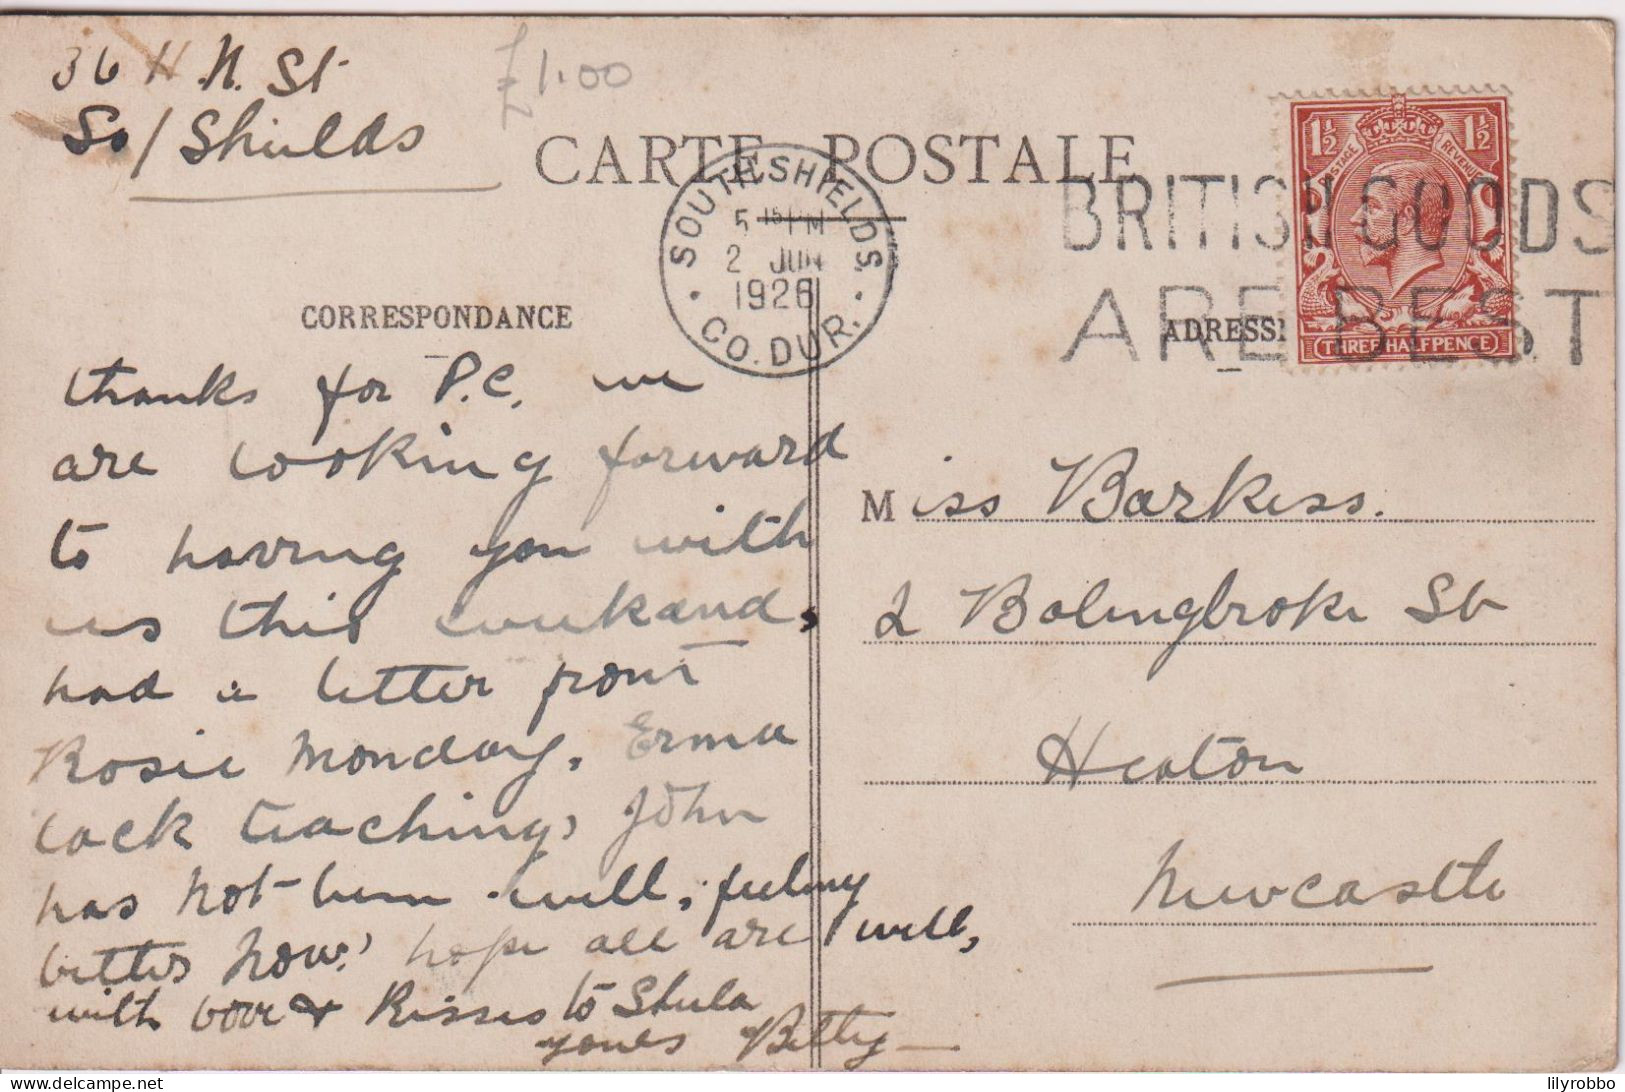 36 H. N. St
So/Shields
£1.00
CARTE POSTALE
SOUTH SHIELDS
5 15 PM
2 JUN
1926
CO. DUR.
BRITISH GOODS
ARE BEST
1½ 1½
POSTAGE REVENUE
THREE HALFPENCE
CORRESPONDANCE
thanks for P.C. we
are looking forward
to having you with
us this weekend,
had a letter from
Rosie Monday. Erma
back teaching, John
has not been well, feeling
better now, hope all are well,
with love & Kisses to Shula
yours Betty
ADRESSE
Miss Barkess.
2 Bolingbroke St
Heaton
Newcastle
delcampe.net
lilyrobbo